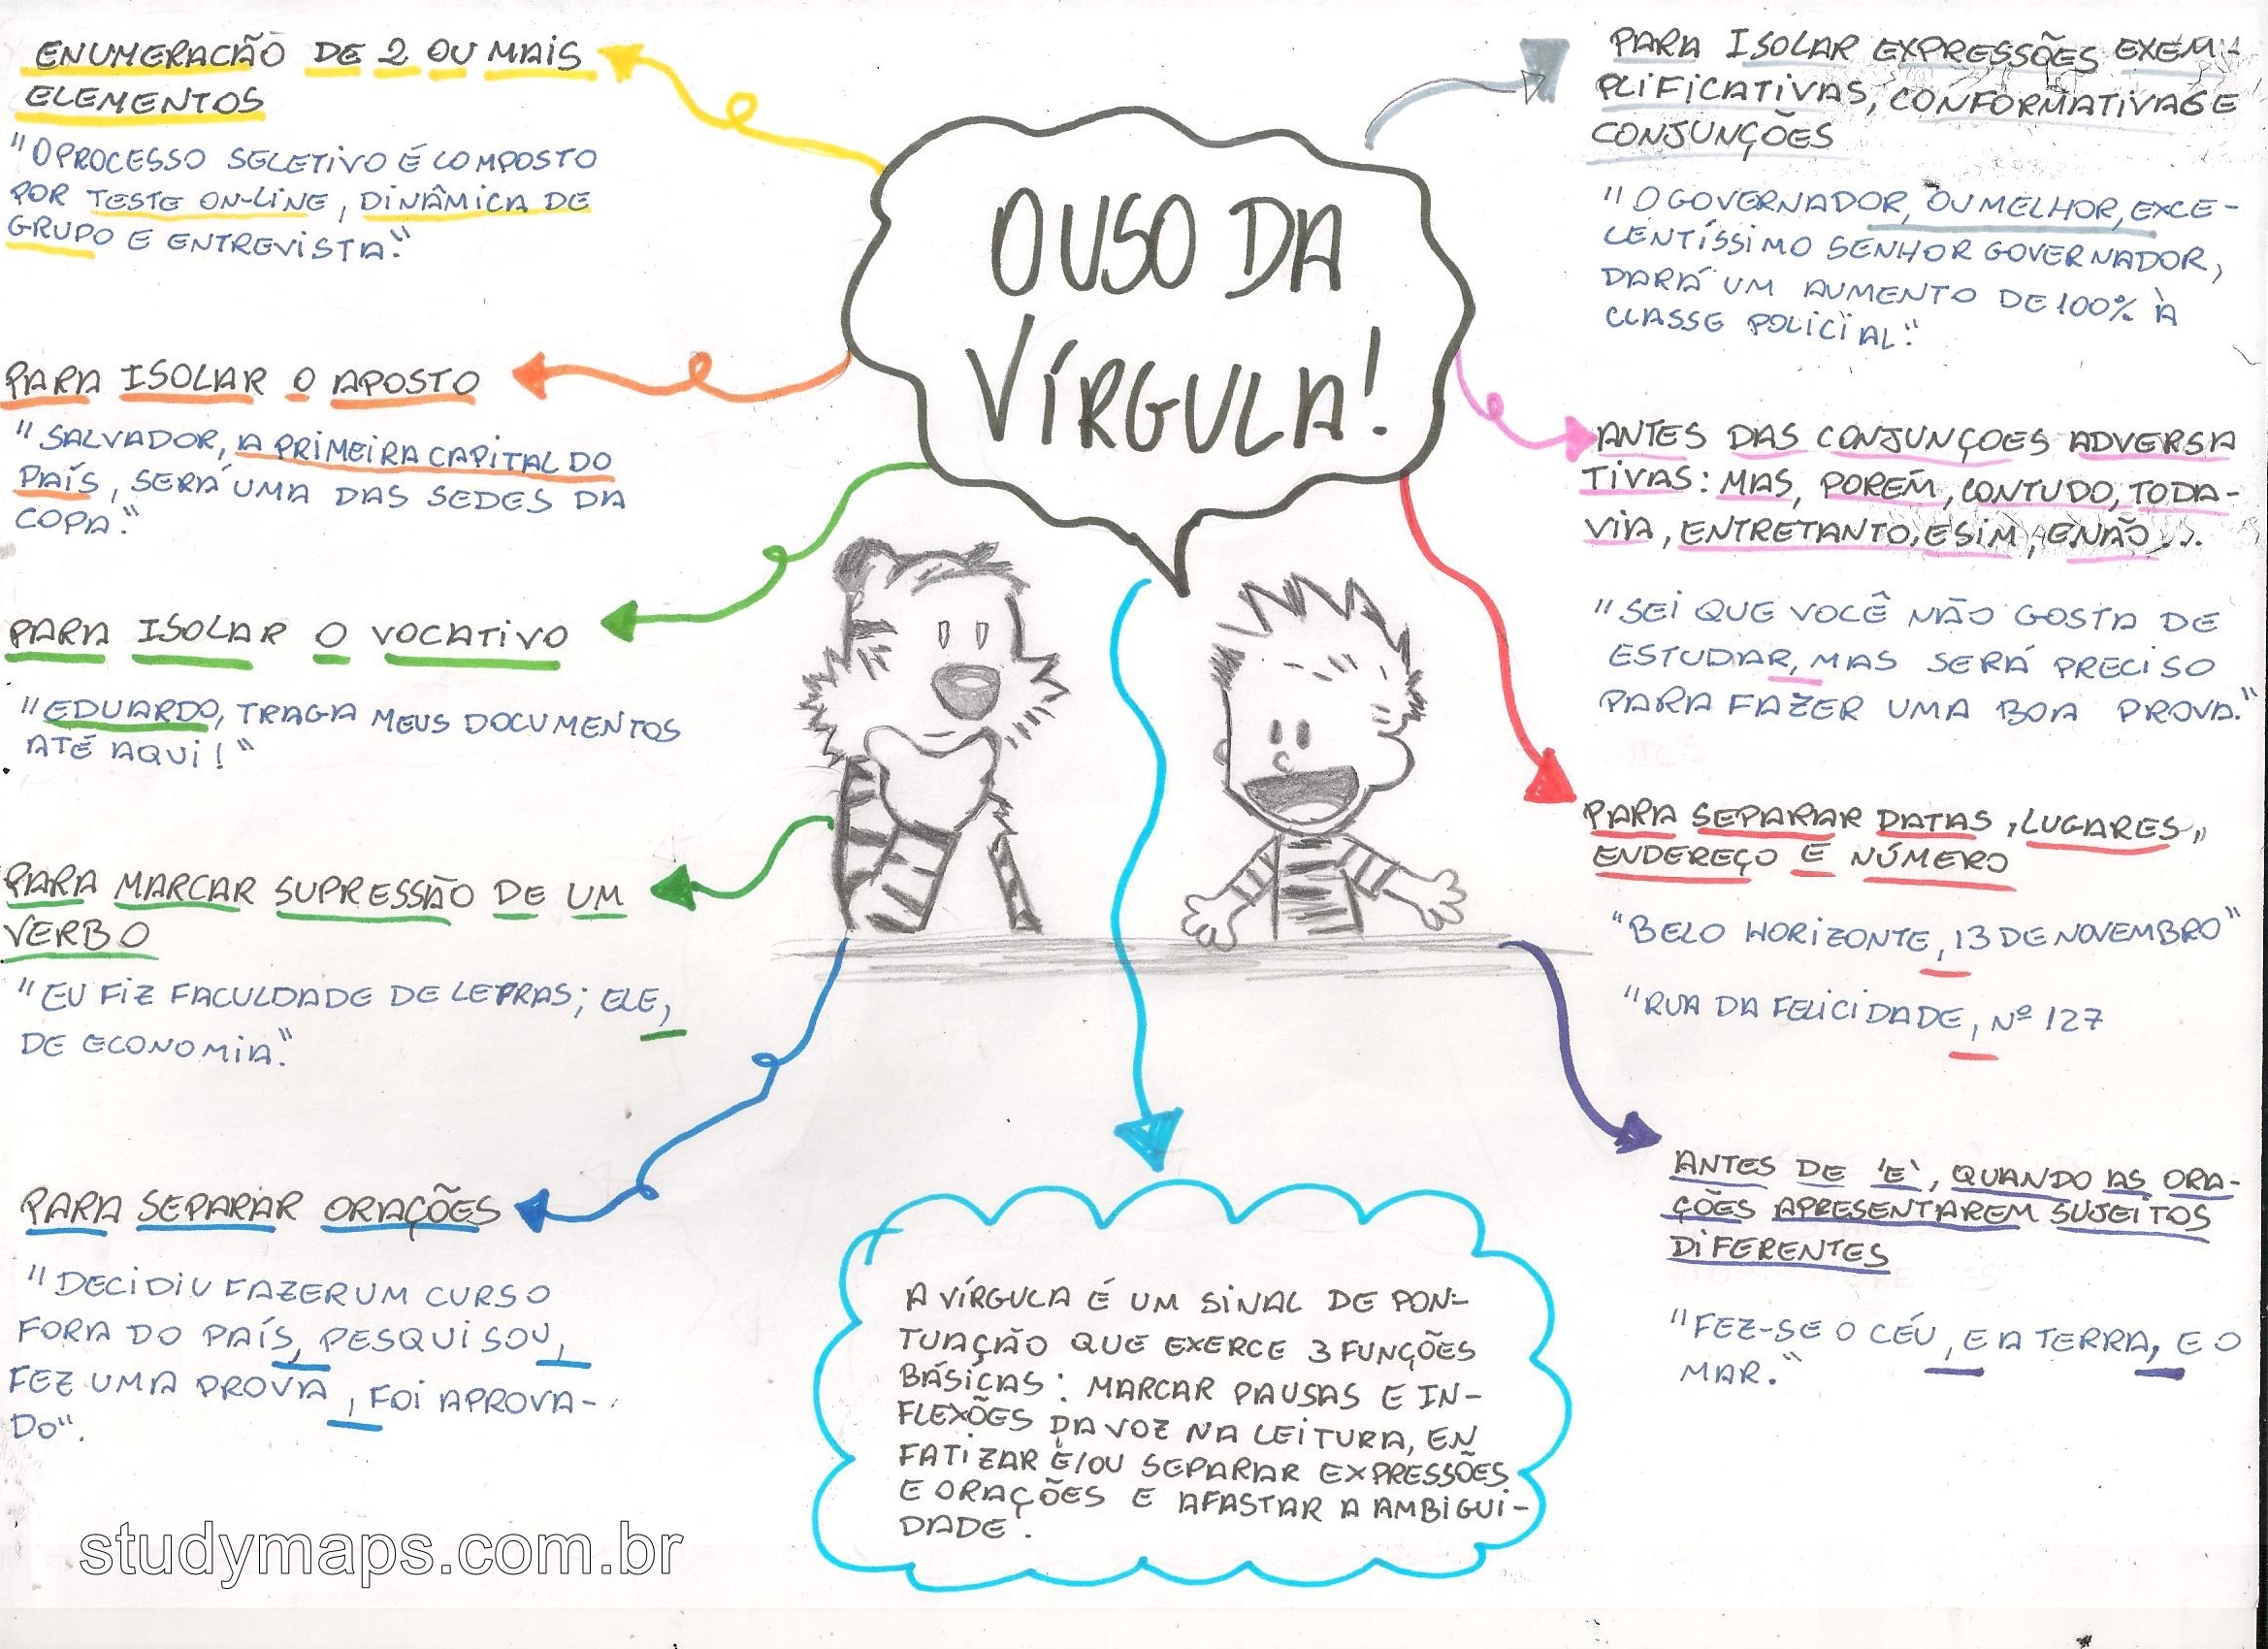 O USO DA
VÍRGULA!
ENUMERAÇÃO DE 2 OU MAIS
ELEMENTOS
"O PROCESSO SELETIVO É COMPOSTO
POR TESTE ON-LINE, DINÂMICA DE
GRUPO E ENTREVISTA."
PARA ISOLAR O APOSTO
"SALVADOR, A PRIMEIRA CAPITAL DO
PAÍS, SERÁ UMA DAS SEDES DA
COPA."
PARA ISOLAR O VOCATIVO
"EDUARDO, TRAGA MEUS DOCUMENTOS
ATÉ AQUI!"
PARA MARCAR SUPRESSÃO DE UM
VERBO
"EU FIZ FACULDADE DE LETRAS; ELE,
DE ECONOMIA."
PARA SEPARAR ORAÇÕES
"DECIDIU FAZER UM CURSO
FORA DO PAÍS, PESQUISOU,
FEZ UMA PROVA, FOI APROVA-
DO".
PARA ISOLAR EXPRESSÕES EXEM-
PLIFICATIVAS, CONFORMATIVAS E
CONJUNÇÕES
"O GOVERNADOR, OU MELHOR, EXCE-
LENTÍSSIMO SENHOR GOVERNADOR,
DARÁ UM AUMENTO DE 100% À
CLASSE POLICIAL."
ANTES DAS CONJUNÇOES ADVERSA
TIVAS: MAS, PORÉM, CONTUDO, TODA-
VIA, ENTRETANTO, E SIM, E NÃO...
"SEI QUE VOCÊ NÃO GOSTA DE
ESTUDAR, MAS SERÁ PRECISO
PARA FAZER UMA BOA PROVA."
PARA SEPARAR DATAS, LUGARES,
ENDEREÇO E NÚMERO
"BELO HORIZONTE, 13 DE NOVEMBRO"
"RUA DA FELICIDADE, Nº 127
ANTES DE 'E', QUANDO AS ORA-
ÇÕES APRESENTAREM SUJEITOS
DIFERENTES
"FEZ-SE O CÉU, E A TERRA, E O
MAR."
A VÍRGULA É UM SINAL DE PON-
TUAÇÃO QUE EXERCE 3 FUNÇÕES
BÁSICAS: MARCAR PAUSAS E IN-
FLEXÕES DA VOZ NA LEITURA, EN
FATIZAR E/OU SEPARAR EXPRESSÕES
E ORAÇÕES E AFASTAR A AMBIGUI-
DADE.
studymaps.com.br